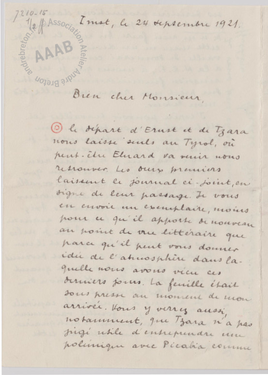 Imst, le 24 septembre 1921.
Bien cher Monsieur,
le départ d'Ernst et de Tzara
nous laisse seuls au Tyrol, où
peut-être Eluard va venir nous
retrouver. Les deux premiers
laissent ce journal ci-joint, en
signe de leur passage. Je vous
en envoie un exemplaire, moins
pour ce qu'il apporte de nouveau
au point de vue littéraire que
parce qu'il peut vous donner
idée de l'atmosphère dans la-
quelle nous avons vécu ces
derniers jours. La feuille était
sous presse au moment de mon
arrivée. Vous y verrez aussi,
notamment, que Tzara n'a pas
jugé utile d'entreprendre une
polémique avec Picabia comme
AAAB
Association Atelier André Breton